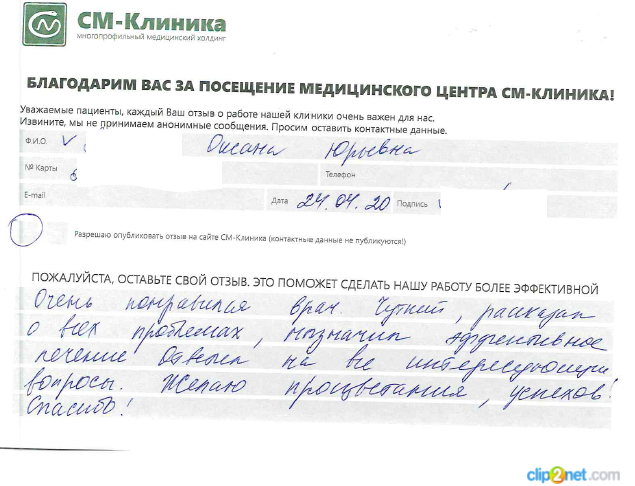 СМ-Клиника
многопрофильный медицинский холдинг
БЛАГОДАРИМ ВАС ЗА ПОСЕЩЕНИЕ МЕДИЦИНСКОГО ЦЕНТРА СМ-КЛИНИКА!
Уважаемые пациенты, каждый Ваш отзыв о работе нашей клиники очень важен для нас.
Извините, мы не принимаем анонимные сообщения. Просим оставить контактные данные.
Ф.И.О. Оксана Юрьевна
№ Карты Телефон
E-mail Дата 24.04.20 Подпись
Разрешаю опубликовать отзыв на сайте СМ-Клиника (контактные данные не публикуются!)
ПОЖАЛУЙСТА, ОСТАВЬТЕ СВОЙ ОТЗЫВ. ЭТО ПОМОЖЕТ СДЕЛАТЬ НАШУ РАБОТУ БОЛЕЕ ЭФФЕКТИВНОЙ
Очень понравился врач. Чуткий, рассказал
о всех проблемах, назначил эффективное
лечение Ответил на все интересующии
вопросы. Желаю процветания, успехов!
Спасибо!
clip2net.com